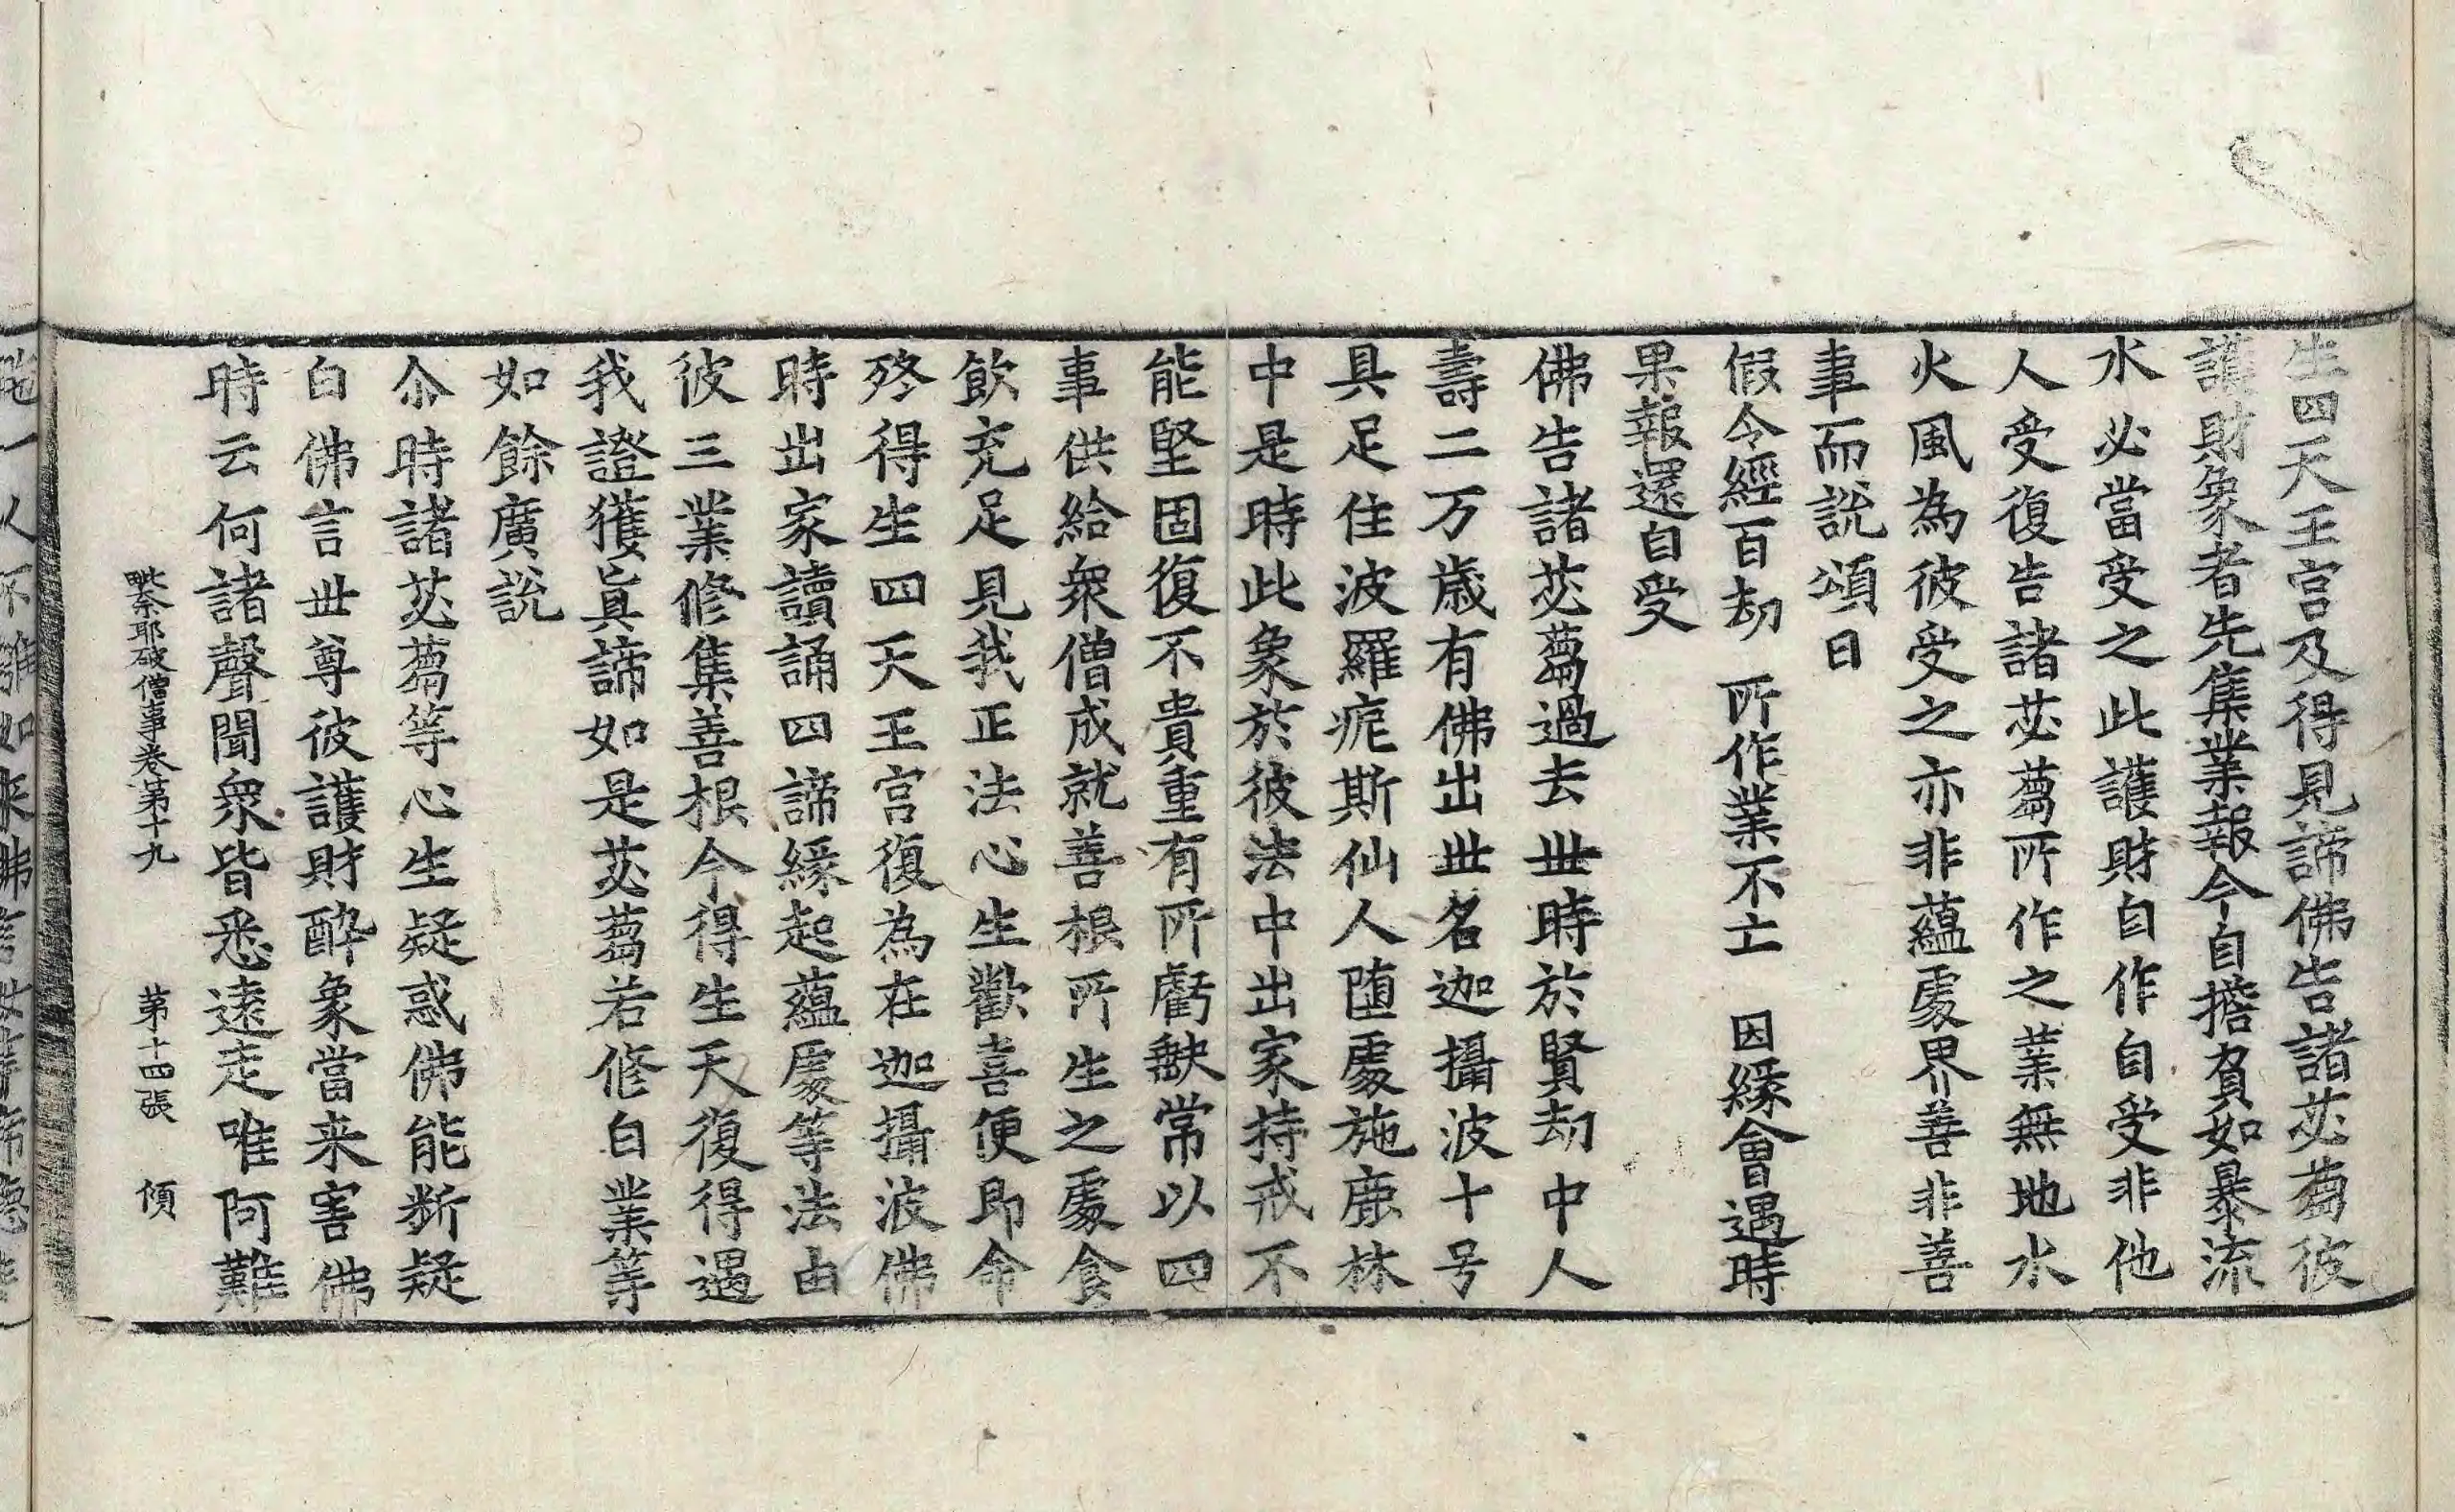 生四天王宮及得見諦佛告諸苾蒭彼
護財象者先集業報今自擔負如暴流
水必當受之此護財自作自受非他
人受復告諸苾蒭所作之業無地水
火風為彼受之亦非蘊處界善非善
事而說頌曰
假令經百劫　所作業不亡　因緣會遇時
果報還自受
佛告諸苾蒭過去世時於賢劫中人
壽二万歲有佛出世名迦攝波十号
具足住波羅痆斯仙人堕處施鹿林
中是時此象於彼法中出家持戒不
能堅固復不貴重有所虧缺常以四
事供給衆僧成就善根所生之處食
飲充足見我正法心生歡喜便即命
終得生四天王宮復為在迦攝波佛
時出家讀誦四諦緣起蘊處等法由
彼三業修集善根今得生天復得遇
我證獲真諦如是苾蒭若修自業等
如餘廣說
尒時諸苾蒭等心生疑惑佛能斷疑
白佛言世尊彼護財醉象當来害佛
時云何諸聲聞衆皆悉遠走唯阿難
毗奈耶破僧事卷第十九　第十四張　傾